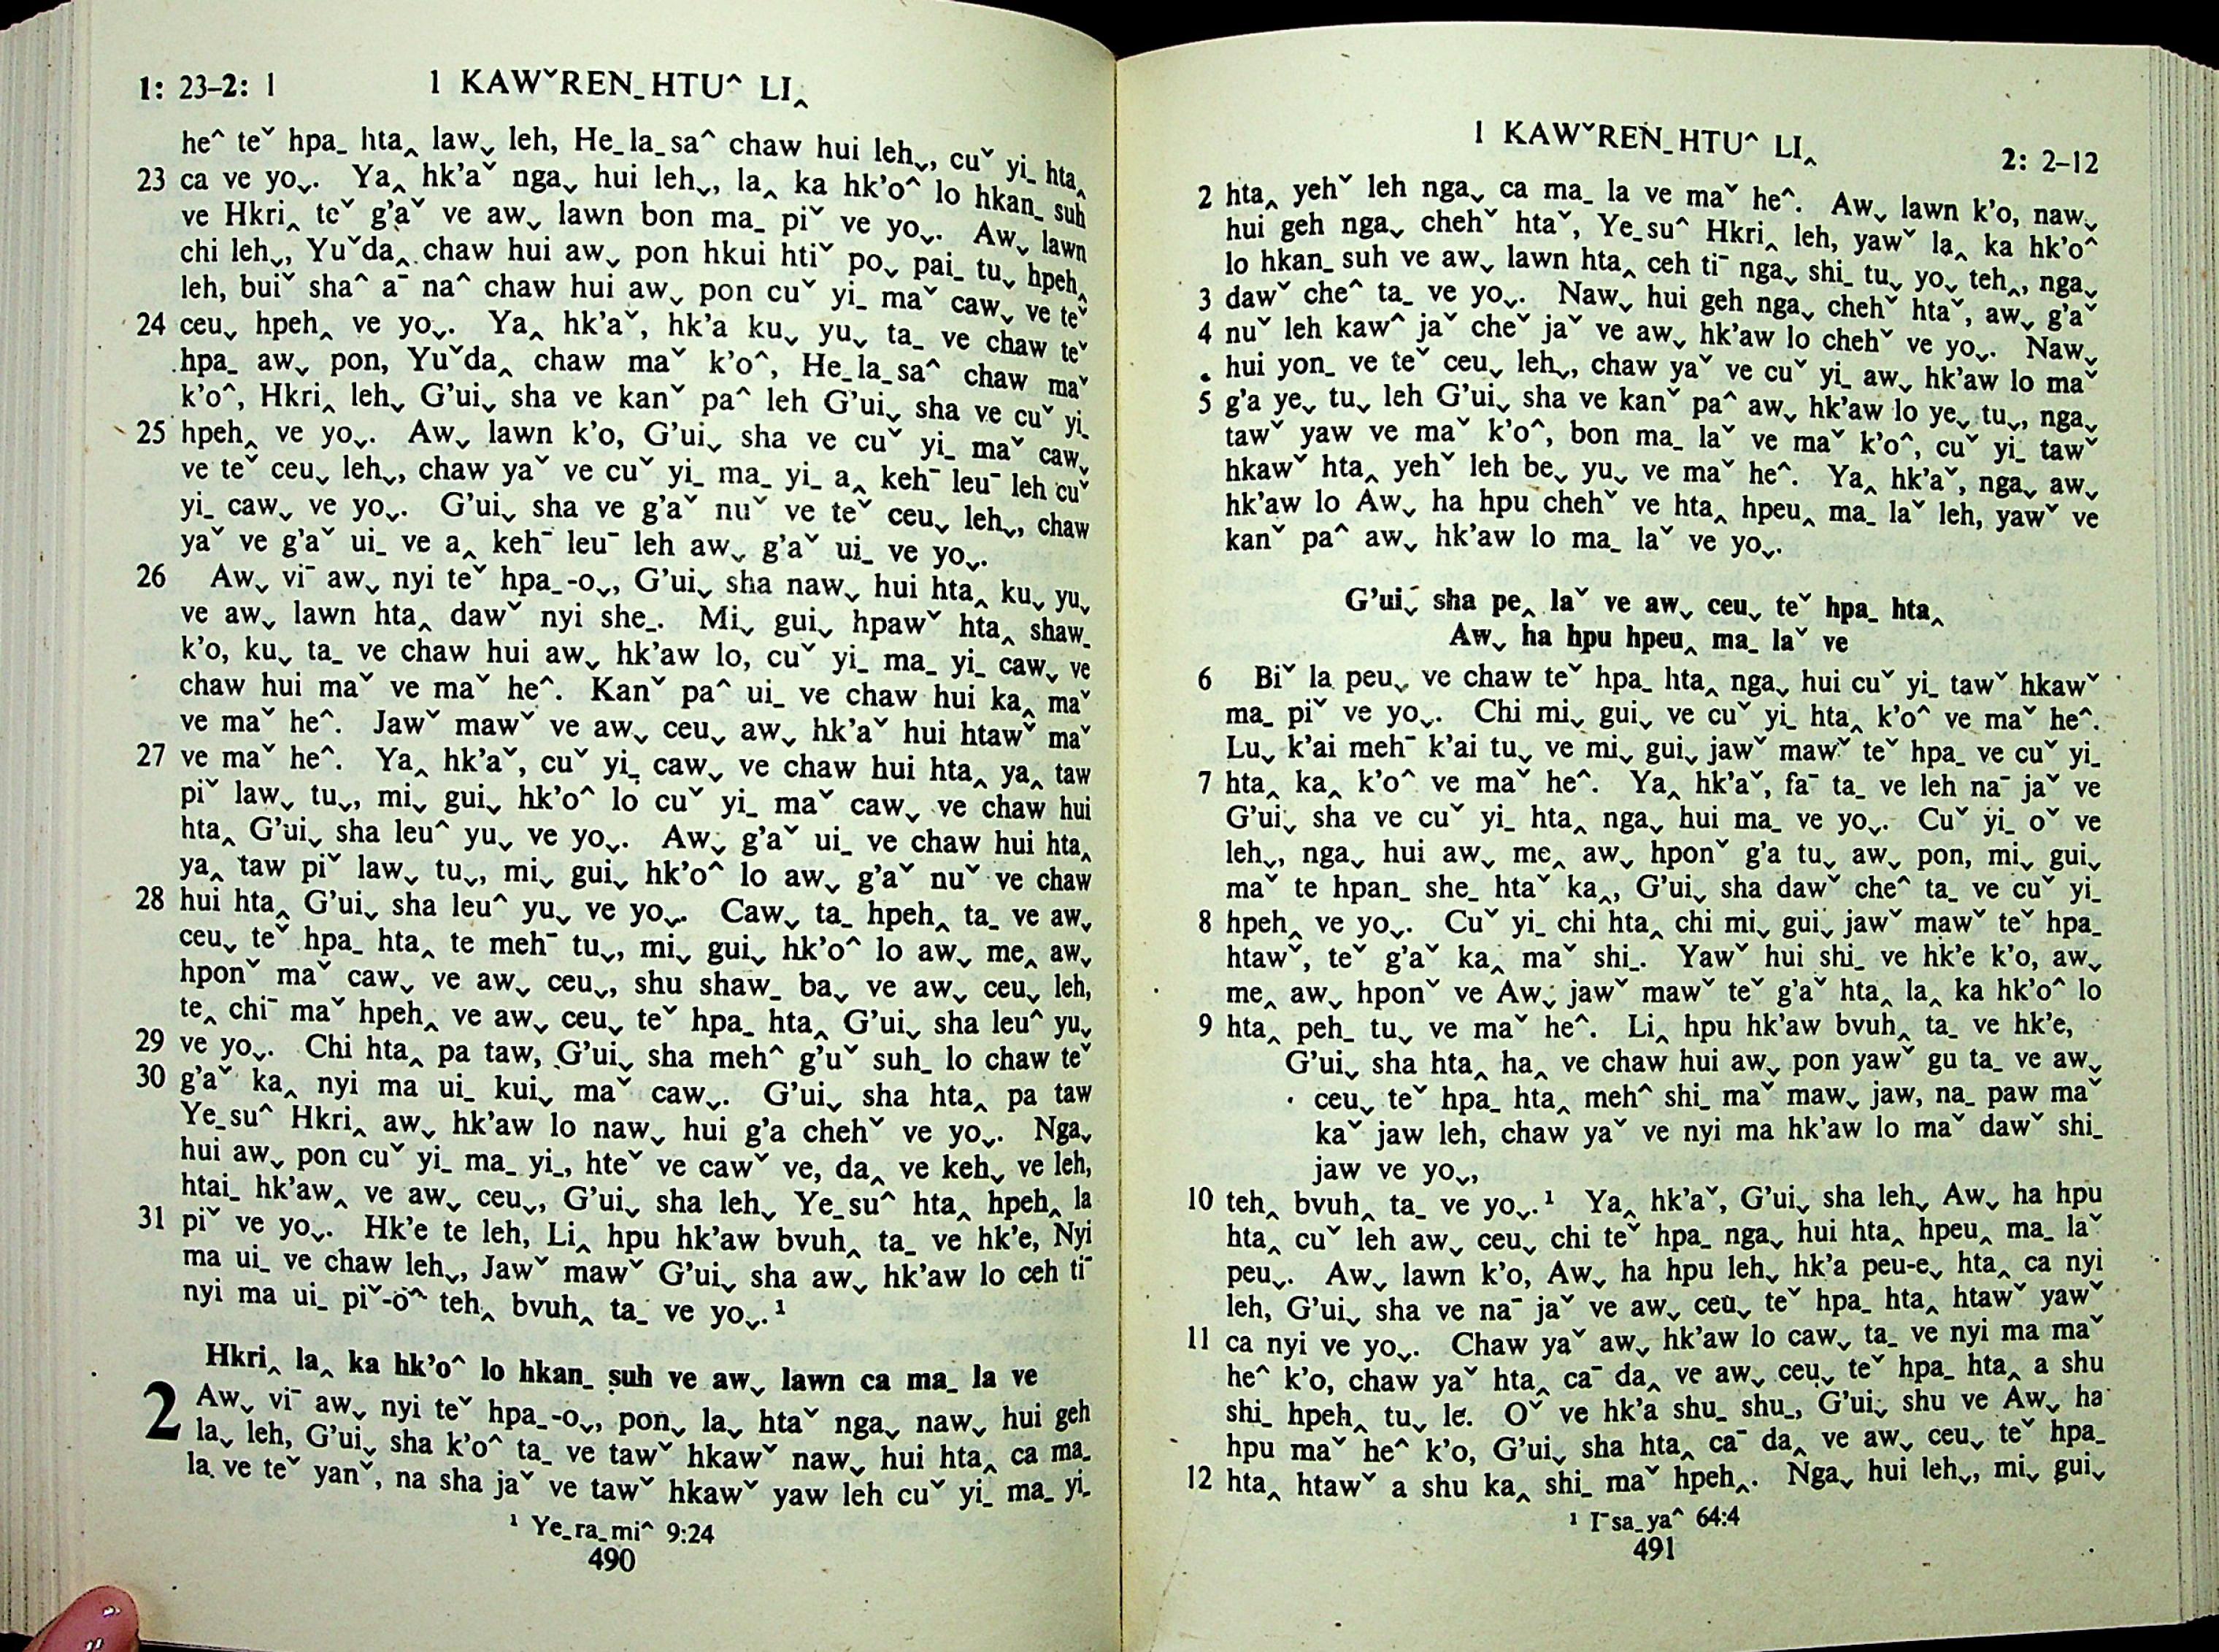 1: 23–2: 1
1 KAWˇREN_HTU^ LI‸
he^ teˇ hpa_ hta‸ law⌄ leh, He_la_sa^ chaw hui leh⌄, cuˇ yi_ hta‸
23 ca ve yo⌄. Ya‸ hk'aˇ nga⌄ hui leh⌄, la‸ ka hk'o^ lo hkan_ suh
ve Hkri‸ teˇ g'aˇ ve aw⌄ lawn bon ma_ piˇ ve yo⌄. Aw⌄ lawn
chi leh⌄, Yuˇda‸ chaw hui aw⌄ pon hkui htiˇ po⌄ pai_ tu⌄ hpeh‸
leh, buiˇ sha^ aˉ na^ chaw hui aw⌄ pon cuˇ yi_ maˇ caw⌄ ve teˇ
24 ceu⌄ hpeh‸ ve yo⌄. Ya‸ hk'aˇ, hk'a ku⌄ yu⌄ ta_ ve chaw teˇ
hpa_ aw⌄ pon, Yuˇda‸ chaw maˇ k'o^, He_la_sa^ chaw maˇ
k'o^, Hkri‸ leh⌄ G'ui⌄ sha ve kanˇ pa^ leh G'ui⌄ sha ve cuˇ yi_
25 hpeh‸ ve yo⌄. Aw⌄ lawn k'o, G'ui⌄ sha ve cuˇ yi_ maˇ caw⌄
ve teˇ ceu⌄ leh⌄, chaw yaˇ ve cuˇ yi_ ma_ yi_ a‸ kehˉ leuˉ leh cuˇ
yi_ caw⌄ ve yo⌄. G'ui⌄ sha ve g'aˇ nuˇ ve teˇ ceu⌄ leh⌄, chaw
yaˇ ve g'aˇ ui_ ve a‸ kehˉ leuˉ leh aw⌄ g'aˇ ui_ ve yo⌄.
26 Aw⌄ viˉ aw⌄ nyi teˇ hpa_-o⌄, G'ui⌄ sha naw⌄ hui hta‸ ku⌄ yu⌄
ve aw⌄ lawn hta‸ dawˇ nyi she_. Mi⌄ gui⌄ hpawˇ hta‸ shaw_
k'o, ku⌄ ta_ ve chaw hui aw⌄ hk'aw lo, cuˇ yi_ ma_ yi_ caw⌄ ve
chaw hui maˇ ve maˇ he^. Kanˇ pa^ ui_ ve chaw hui ka‸ maˇ
ve maˇ he^. Jawˇ mawˇ ve aw⌄ ceu⌄ aw⌄ hk'aˇ hui htawˇ maˇ
27 ve maˇ he^. Ya‸ hk'aˇ, cuˇ yi_ caw⌄ ve chaw hui hta‸ ya‸ taw
piˇ law⌄ tu⌄, mi⌄ gui⌄ hk'o^ lo cuˇ yi_ maˇ caw⌄ ve chaw hui
hta‸ G'ui⌄ sha leu^ yu⌄ ve yo⌄. Aw⌄ g'aˇ ui_ ve chaw hui hta‸
ya‸ taw piˇ law⌄ tu⌄, mi⌄ gui⌄ hk'o^ lo aw⌄ g'aˇ nuˇ ve chaw
28 hui hta‸ G'ui⌄ sha leu^ yu⌄ ve yo⌄. Caw⌄ ta_ hpeh‸ ta_ ve aw⌄
ceu⌄ teˇ hpa_ hta‸ te mehˉ tu⌄, mi⌄ gui⌄ hk'o^ lo aw⌄ me‸ aw⌄
hponˇ maˇ caw⌄ ve aw⌄ ceu⌄, shu shaw_ ba⌄ ve aw⌄ ceu⌄ leh,
te‸ chiˉ maˇ hpeh‸ ve aw⌄ ceu⌄ teˇ hpa_ hta‸ G'ui⌄ sha leu^ yu⌄
29 ve yo⌄. Chi hta‸ pa taw, G'ui⌄ sha meh^ g'uˇ suh_ lo chaw teˇ
30 g'aˇ ka‸ nyi ma ui_ kui⌄ maˇ caw⌄. G'ui⌄ sha hta‸ pa taw
Ye_su^ Hkri‸ aw⌄ hk'aw lo naw⌄ hui g'a chehˇ ve yo⌄. Nga⌄
hui aw⌄ pon cuˇ yi_ ma_ yi_, hteˇ ve cawˇ ve, da‸ ve keh⌄ ve leh,
htai_ hk'aw‸ ve aw⌄ ceu⌄, G'ui⌄ sha leh⌄ Ye_su^ hta‸ hpeh‸ la
31 piˇ ve yo⌄. Hk'e te leh, Li‸ hpu hk'aw bvuh‸ ta_ ve hk'e, Nyi
ma ui_ ve chaw leh⌄, Jawˇ mawˇ G'ui⌄ sha aw⌄ hk'aw lo ceh tiˉ
nyi ma ui_ piˇ-o^ teh‸ bvuh‸ ta_ ve yo⌄.¹
Hkri‸ la‸ ka hk'o^ lo hkan_ suh ve aw⌄ lawn ca ma_ la ve
2 Aw⌄ viˉ aw⌄ nyi teˇ hpa_-o⌄, pon⌄ la⌄ htaˇ nga⌄ naw⌄ hui geh
la⌄ leh, G'ui⌄ sha k'o^ ta_ ve tawˇ hkawˇ naw⌄ hui hta‸ ca ma_
la ve teˇ yanˇ, na sha jaˇ ve tawˇ hkawˇ yaw leh cuˇ yi_ ma_ yi_
¹ Ye_ra_mi^ 9:24
490
1 KAWˇREN_HTU^ LI‸
2: 2–12
2 hta‸ yehˇ leh nga⌄ ca ma_ la ve maˇ he^. Aw⌄ lawn k'o, naw⌄
hui geh nga⌄ chehˇ htaˇ, Ye_su^ Hkri‸ leh, yawˇ la‸ ka hk'o^
lo hkan_ suh ve aw⌄ lawn hta‸ ceh tiˉ nga⌄ shi_ tu⌄ yo⌄ teh‸, nga⌄
3 dawˇ che^ ta_ ve yo⌄. Naw⌄ hui geh nga⌄ chehˇ htaˇ, aw⌄ g'aˇ
4 nuˇ leh kaw^ jaˇ cheˇ jaˇ ve aw⌄ hk'aw lo chehˇ ve yo⌄. Naw⌄
hui yon_ ve teˇ ceu⌄ leh⌄, chaw yaˇ ve cuˇ yi_ aw⌄ hk'aw lo maˇ
5 g'a ye⌄ tu⌄ leh G'ui⌄ sha ve kanˇ pa^ aw⌄ hk'aw lo ye⌄ tu⌄, nga⌄
tawˇ yaw ve maˇ k'o^, bon ma_ laˇ ve maˇ k'o^, cuˇ yi_ tawˇ
hkawˇ hta‸ yehˇ leh be⌄ yu⌄ ve maˇ he^. Ya‸ hk'aˇ, nga⌄ aw⌄
hk'aw lo Aw⌄ ha hpu chehˇ ve hta‸ hpeu‸ ma_ laˇ leh, yawˇ ve
kanˇ pa^ aw⌄ hk'aw lo ma_ laˇ ve yo⌄.
G'ui⌄ sha pe‸ laˇ ve aw⌄ ceu⌄ teˇ hpa_ hta‸
Aw⌄ ha hpu hpeu‸ ma_ laˇ ve
6 Biˇ la peu⌄ ve chaw teˇ hpa_ hta‸ nga⌄ hui cuˇ yi_ tawˇ hkawˇ
ma_ piˇ ve yo⌄. Chi mi⌄ gui⌄ ve cuˇ yi_ hta‸ k'o^ ve maˇ he^.
Lu⌄ k'ai mehˉ k'ai tu⌄ ve mi⌄ gui⌄ jawˇ mawˇ teˇ hpa_ ve cuˇ yi_
7 hta‸ ka‸ k'o^ ve maˇ he^. Ya‸ hk'aˇ, faˉ ta_ ve leh naˉ jaˇ ve
G'ui⌄ sha ve cuˇ yi_ hta‸ nga⌄ hui ma_ ve yo⌄. Cuˇ yi_ oˇ ve
leh⌄, nga⌄ hui aw⌄ me‸ aw⌄ hponˇ g'a tu⌄ aw⌄ pon, mi⌄ gui⌄
maˇ te hpan_ she_ htaˇ ka‸, G'ui⌄ sha dawˇ che^ ta_ ve cuˇ yi_
8 hpeh‸ ve yo⌄. Cuˇ yi_ chi hta‸ chi mi⌄ gui⌄ jawˇ mawˇ teˇ hpa_
htawˇ, teˇ g'aˇ ka‸ maˇ shi_. Yawˇ hui shi_ ve hk'e k'o, aw⌄
me‸ aw⌄ hponˇ ve Aw⌄ jawˇ mawˇ teˇ g'aˇ hta‸ la‸ ka hk'o^ lo
9 hta‸ peh_ tu⌄ ve maˇ he^. Li‸ hpu hk'aw bvuh‸ ta_ ve hk'e,
G'ui⌄ sha hta‸ ha‸ ve chaw hui aw⌄ pon yawˇ gu ta_ ve aw⌄
ceu⌄ teˇ hpa_ hta‸ meh^ shi_ maˇ maw⌄ jaw, na_ paw maˇ
kaˇ jaw leh, chaw yaˇ ve nyi ma hk'aw lo maˇ dawˇ shi_
jaw ve yo⌄,
10 teh‸ bvuh‸ ta_ ve yo⌄.¹ Ya‸ hk'aˇ, G'ui⌄ sha leh⌄ Aw⌄ ha hpu
hta‸ cuˇ leh aw⌄ ceu⌄ chi teˇ hpa_ nga⌄ hui hta‸ hpeu‸ ma_ laˇ
peu⌄. Aw⌄ lawn k'o, Aw⌄ ha hpu leh⌄ hk'a peu-e⌄ hta‸ ca nyi
leh, G'ui⌄ sha ve naˉ jaˇ ve aw⌄ ceu⌄ teˇ hpa_ hta‸ htawˇ yawˇ
11 ca nyi ve yo⌄. Chaw yaˇ aw⌄ hk'aw lo caw⌄ ta_ ve nyi ma maˇ
he^ k'o, chaw yaˇ hta‸ caˉ da‸ ve aw⌄ ceu⌄ teˇ hpa_ hta‸ a shu
shi_ hpeh‸ tu⌄ le. Oˇ ve hk'a shu_ shu_, G'ui⌄ shu ve Aw⌄ ha
hpu maˇ he^ k'o, G'ui⌄ sha hta‸ caˉ da‸ ve aw⌄ ceu⌄ teˇ hpa_
12 hta‸ htawˇ a shu ka‸ shi_ maˇ hpeh‸. Nga⌄ hui leh⌄, mi⌄ gui⌄
¹ Iˉsa_ya^ 64:4
491